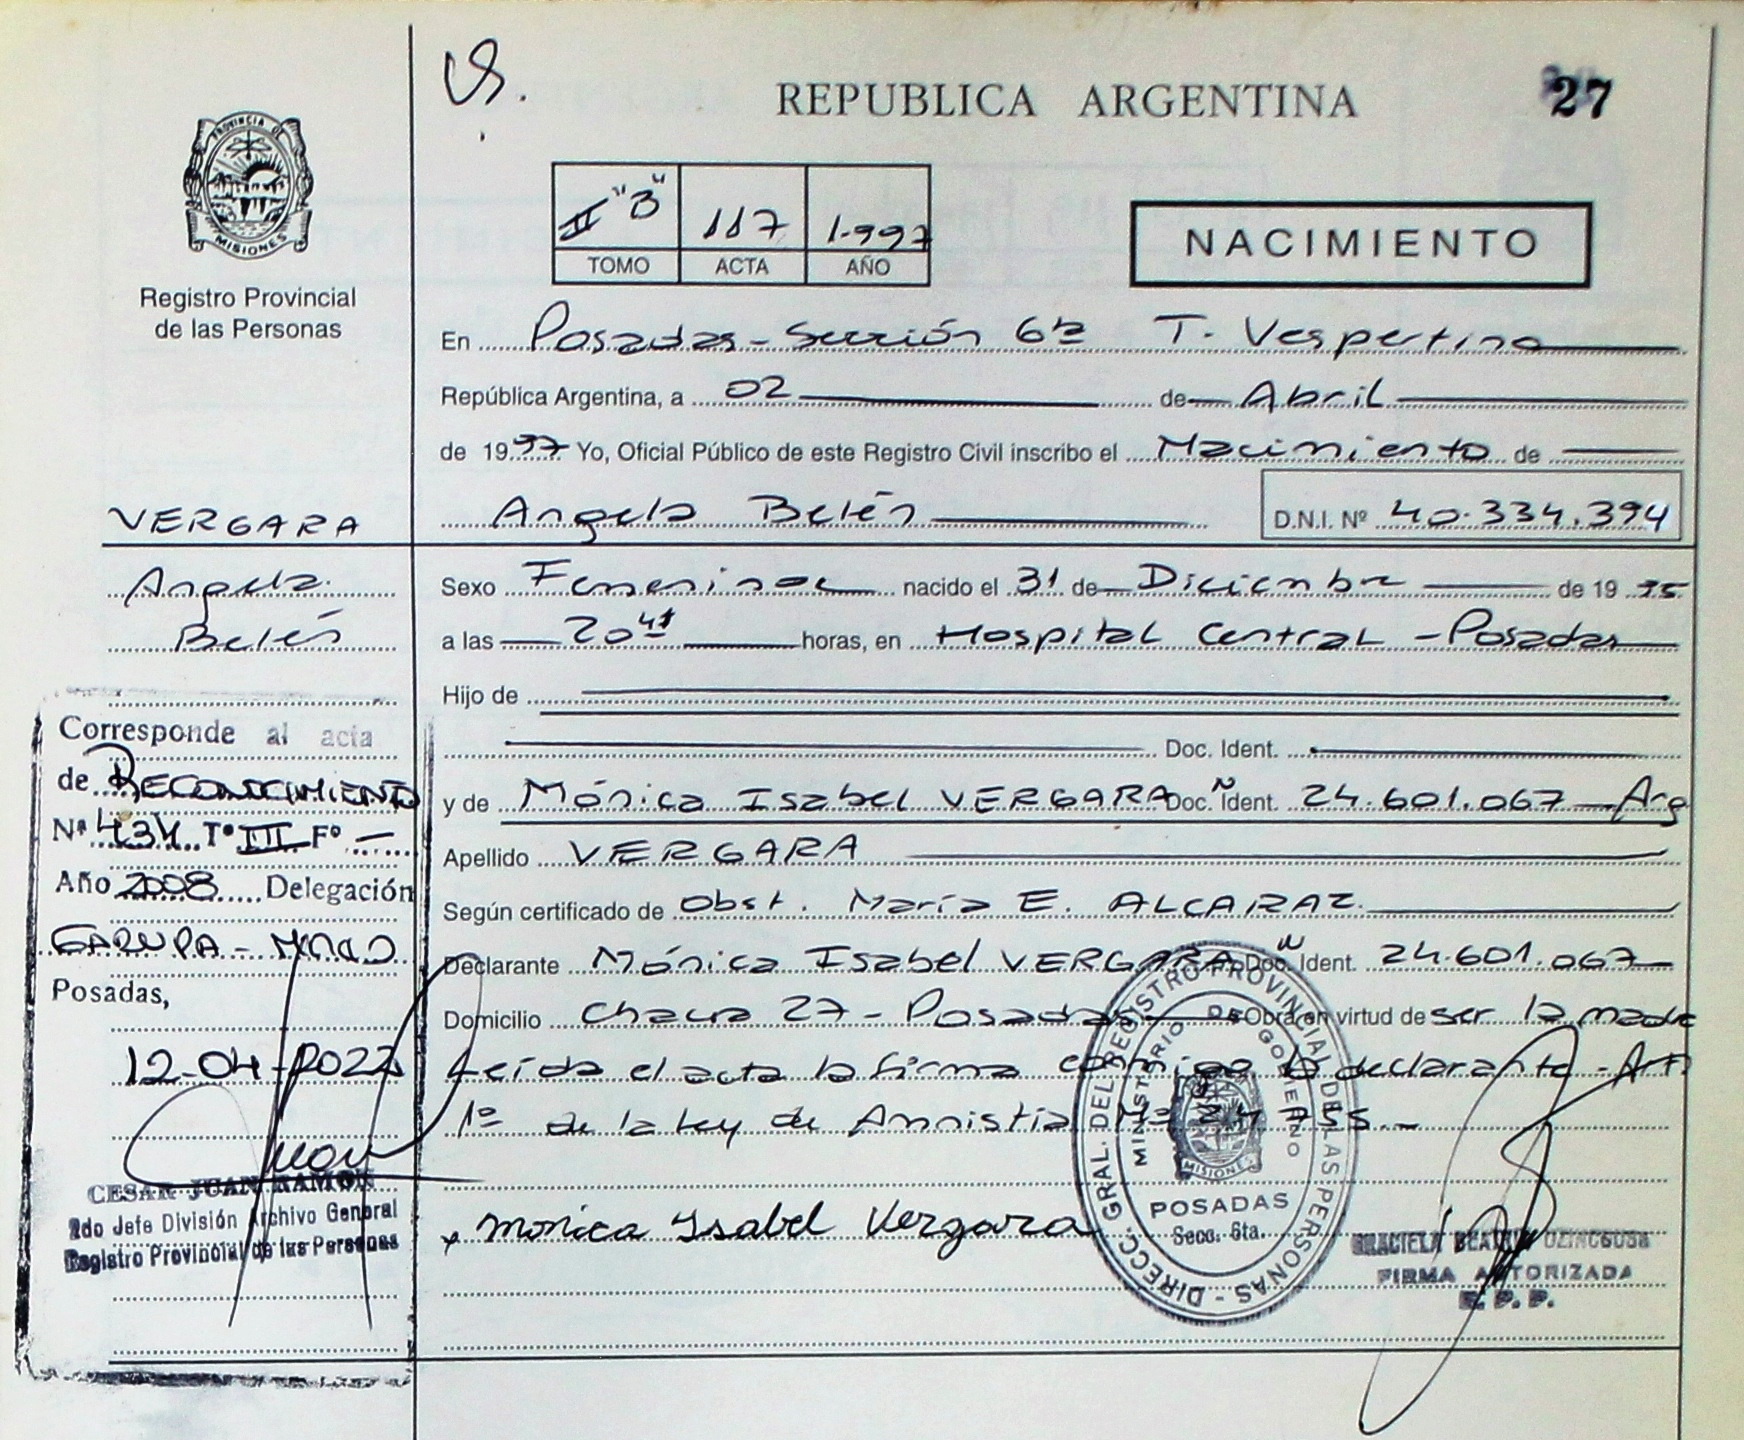 27
REPUBLICA ARGENTINA
PROVINCIA DE
MISIONES
Registro Provincial
de las Personas
II "B" 117 1.997
TOMO ACTA AÑO
NACIMIENTO
En Posadas - Sección 6ta T. Vespertino
República Argentina, a 02 de Abril
de 1997 Yo, Oficial Público de este Registro Civil inscribo el Nacimiento de
Angela Belén D.N.I. Nº 40.334.394
VERGARA
Angela
Belén
Sexo Femenino nacido el 31 de Diciembre de 1995
a las 20 horas, en Hospital Central - Posadas
Hijo de
Doc. Ident.
y de Mónica Isabel VERGARA Doc. Ident. 24.601.067 Arg
Apellido VERGARA
Según certificado de Obst. María E. ALCARAZ.
Declarante Mónica Isabel VERGARA Doc. Ident. 24.601.067
Domicilio Chacra 27 - Posadas Obra en virtud de ser la madre
Leída el acta la firma conmigo la declarante - Art
1º de la Ley de Amnistia Nº 24.755.-
x Monica Isabel Vergara
Corresponde al acta
de RECONOCIMIENTO
Nº 434 Tº III Fº -
Año 2008 Delegación
GARUPA -
Posadas,
12-04-2022
CESAR JUAN RAMON
2do Jefe División Archivo General
Registro Provincial de las Personas
DIRECC. GRAL. DEL REGISTRO PROVINCIAL DE LAS PERSONAS
MINISTERIO DE GOBIERNO
MISIONES
POSADAS
Secc. 6ta.
GRACIELA BEATRIZ
FIRMA AUTORIZADA
R. P. P.